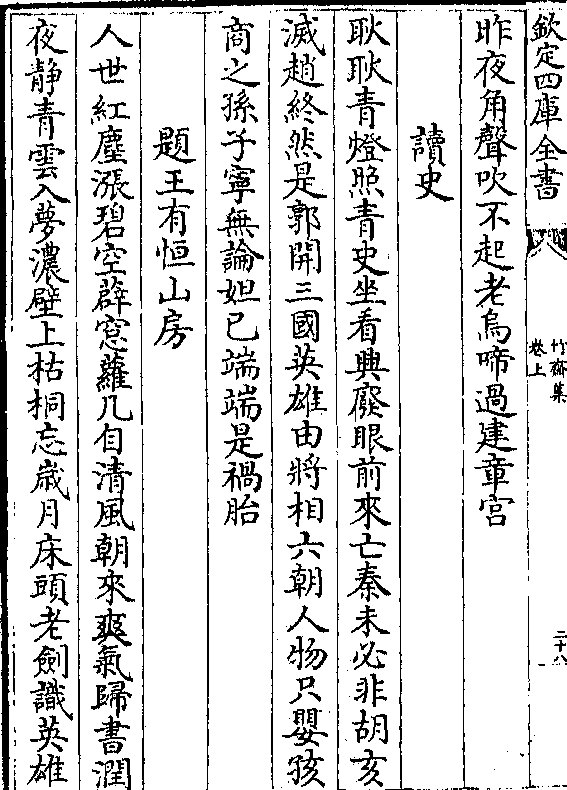 欽定四庫全書
竹齋集
卷上
二十八
昨夜角聲吹不起老烏啼過建章宫
讀史
耿耿青燈照青史坐看興廢眼前來亡秦未必非胡亥
滅趙終然是郭開三國英雄由將相六朝人物只嬰孩
商之孫子寧無論妲已端端是禍胎
題王有恒山房
人世紅塵漲碧空薜窓蘿几自清風朝來爽氣歸書潤
夜靜青雲入夢濃壁上枯桐忘歲月床頭老劍識英雄